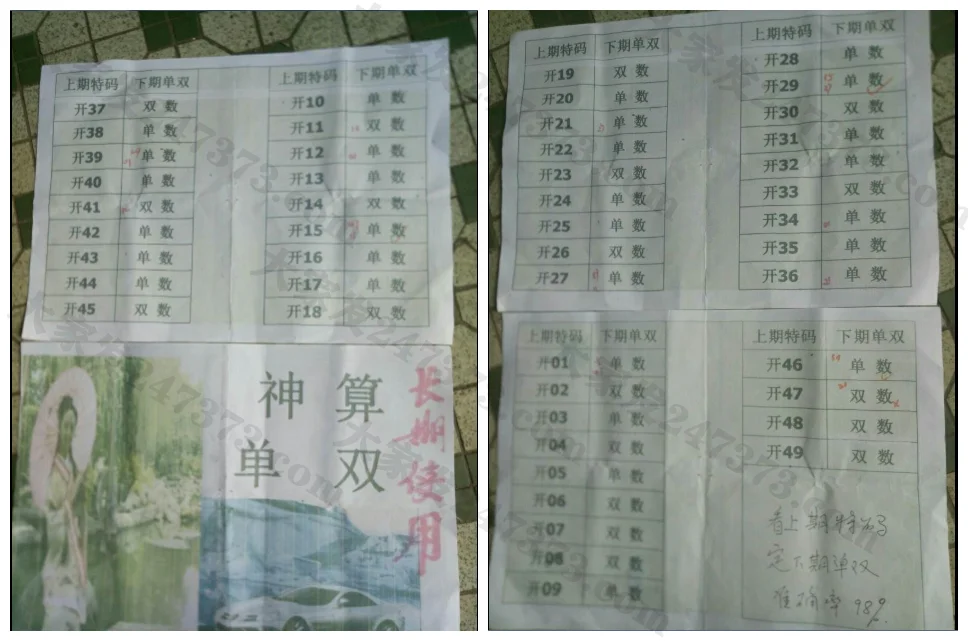 上期特码 下期单双
开37 双数
开38 单数
开39 单数
开40 单数
开41 双数
开42 单数
开43 单数
开44 单数
开45 双数
上期特码 下期单双
开10 单数
开11 双数
开12 单数
开13 单数
开14 双数
开15 单数
开16 单数
开17 单数
开18 双数
神算
单双
长期使用
上期特码 下期单双
开19 双数
开20 单数
开21 单数
开22 单数
开23 双数
开24 单数
开25 单数
开26 双数
开27 单数
上期特码 下期单双
开28 单数
开29 单数
开30 双数
开31 单数
开32 单数
开33 双数
开34 单数
开35 单数
开36 单数
上期特码 下期单双
开01 单数
开02 双数
开03 单数
开04 双数
开05 单数
开06 双数
开07 双数
开08 双数
开09 单数
上期特码 下期单双
开46 单数
开47 双数
开48 双数
开49 双数
看上期特码
定下期单双
准确率98%
大家发247373.com